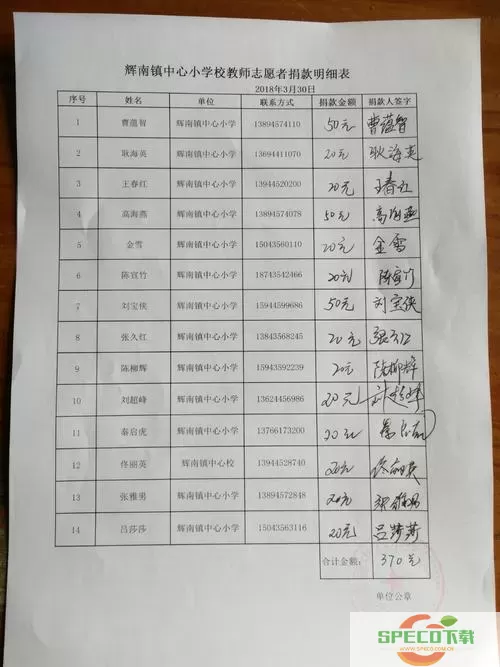 辉南镇中心小学校教师志愿者捐款明细表
2018年3月30日
序号 姓名 单位 联系方式 捐款金额 捐款人签字
1 曹蕴智 辉南镇中心小学 13894574110 50元 曹蕴智
2 耿海英 辉南镇中心小学 13694411070 20元 耿海英
3 王春红 辉南镇中心小学 13944520200 20元 王春红
4 高海燕 辉南镇中心小学 13894574078 50元 高海燕
5 金雪 辉南镇中心小学 15043560110 20元 金雪
6 陈宣竹 辉南镇中心小学 18743542466 20元 陈宣竹
7 刘宝侠 辉南镇中心小学 15944599686 50元 刘宝侠
8 张久红 辉南镇中心小学 13843568245 20元 张久红
9 陈柳辉 辉南镇中心小学 15943592239 20元 陈柳辉
10 刘超峰 辉南镇中心小学 13624456986 20元 刘超峰
11 秦启虎 辉南镇中心小学 13766173200 20元
12 佟丽英 辉南镇中心校 13944528740 20元 佟丽英
13 张雅男 辉南镇中心小学 13894572848 20元 张雅男
14 吕莎莎 辉南镇中心小学 15043563116 20元 吕莎莎
合计金额: 370元
单位公章
SPECO下载